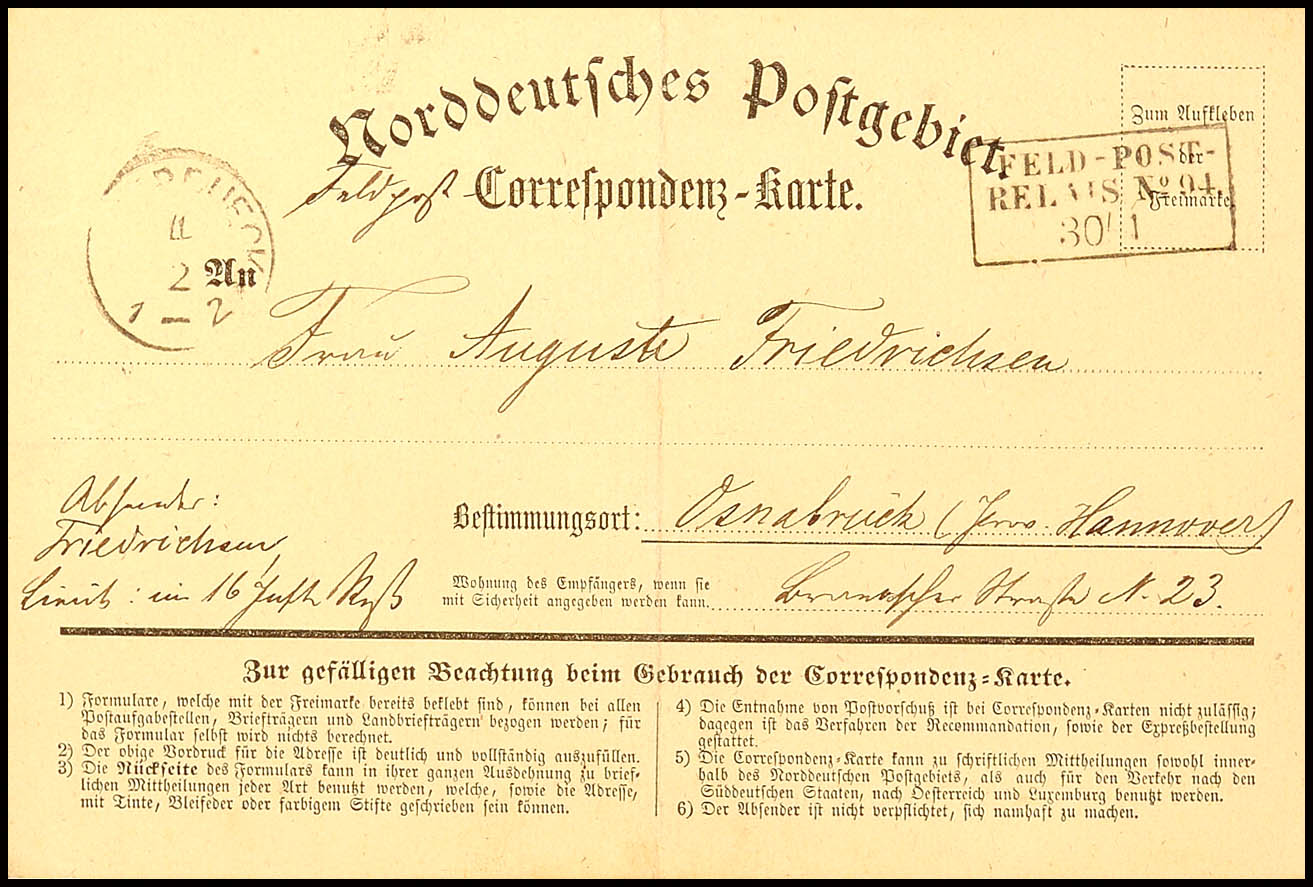 Norddeutsches Postgebiet.
Feldpost-Correspondenz-Karte.
Zum Aufkleben
der
Freimarke.
FELD-POST-
RELAIS No 94.
30/1
4
2
1-2
An
Frau Auguste Friedrichsen
Absender:
Friedrichsen,
Lieut: im 16 Inft. Regt
Bestimmungsort: Osnabrück (Prov. Hannover)
Wohnung des Empfängers, wenn sie
mit Sicherheit angegeben werden kann. Straße N. 23.
Zur gefälligen Beachtung beim Gebrauch der Correspondenz-Karte.
1) Formulare, welche mit der Freimarke bereits beklebt sind, können bei allen
Postaufgabestellen, Briefträgern und Landbriefträgern bezogen werden; für
das Formular selbst wird nichts berechnet.
2) Der obige Vordruck für die Adresse ist deutlich und vollständig auszufüllen.
3) Die Rückseite des Formulars kann in ihrer ganzen Ausdehnung zu brief-
lichen Mittheilungen jeder Art benutzt werden, welche, sowie die Adresse,
mit Tinte, Bleifeder oder farbigem Stifte geschrieben sein können.
4) Die Entnahme von Postvorschuß ist bei Correspondenz-Karten nicht zulässig;
dagegen ist das Verfahren der Recommandation, sowie der Expreßbestellung
gestattet.
5) Die Correspondenz-Karte kann zu schriftlichen Mittheilungen sowohl inner-
halb des Norddeutschen Postgebiets, als auch für den Verkehr nach den
Süddeutschen Staaten, nach Oesterreich und Luxemburg benutzt werden.
6) Der Absender ist nicht verpflichtet, sich namhaft zu machen.